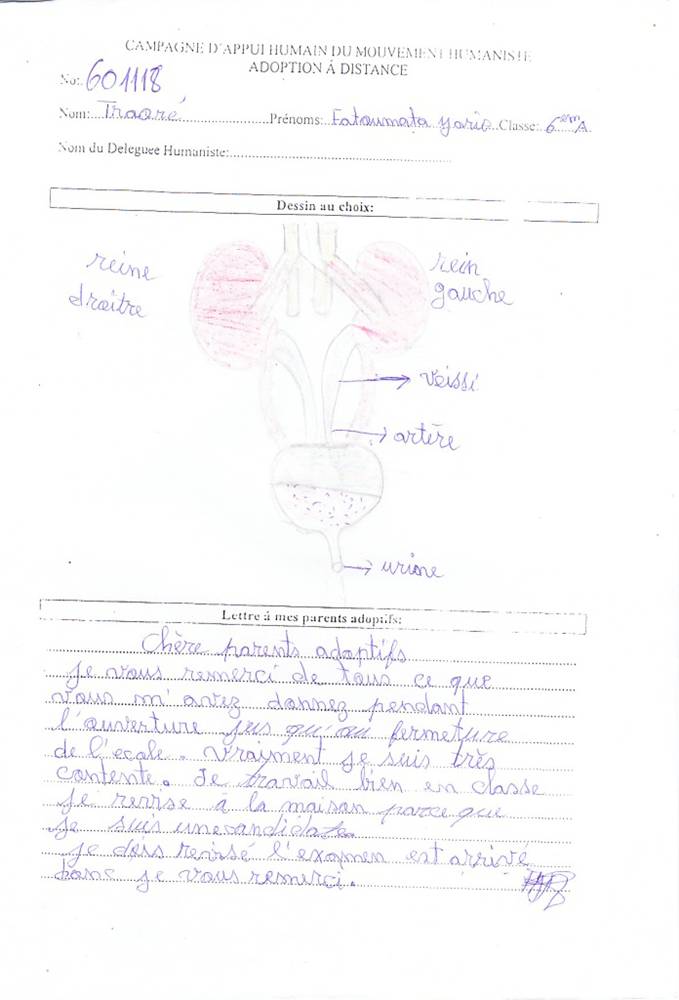 CAMPAGNE D'APPUI HUMAIN DU MOUVEMENT HUMANISTE
ADOPTION À DISTANCE
No: 601118
Nom: Traoré Prénoms: Fatoumata yario Classe: 6em A
Nom du Deleguee Humaniste:
Dessin au choix:
reine
droitre
rein
gauche
veissi
artère
urine
Lettre à mes parents adoptifs:
Chère parents adoptifs
Je vous remerci de tous ce que
vous m'avez donnez pendant
l'ouverture jus qu'au fermeture
de l'ecole. Vraiment je suis très
contente. Je travail bien en classe
Je revise à la maison parce que
je suis une candidate.
Je dois revisé l'examen est arrivé
donc je vous remerci.